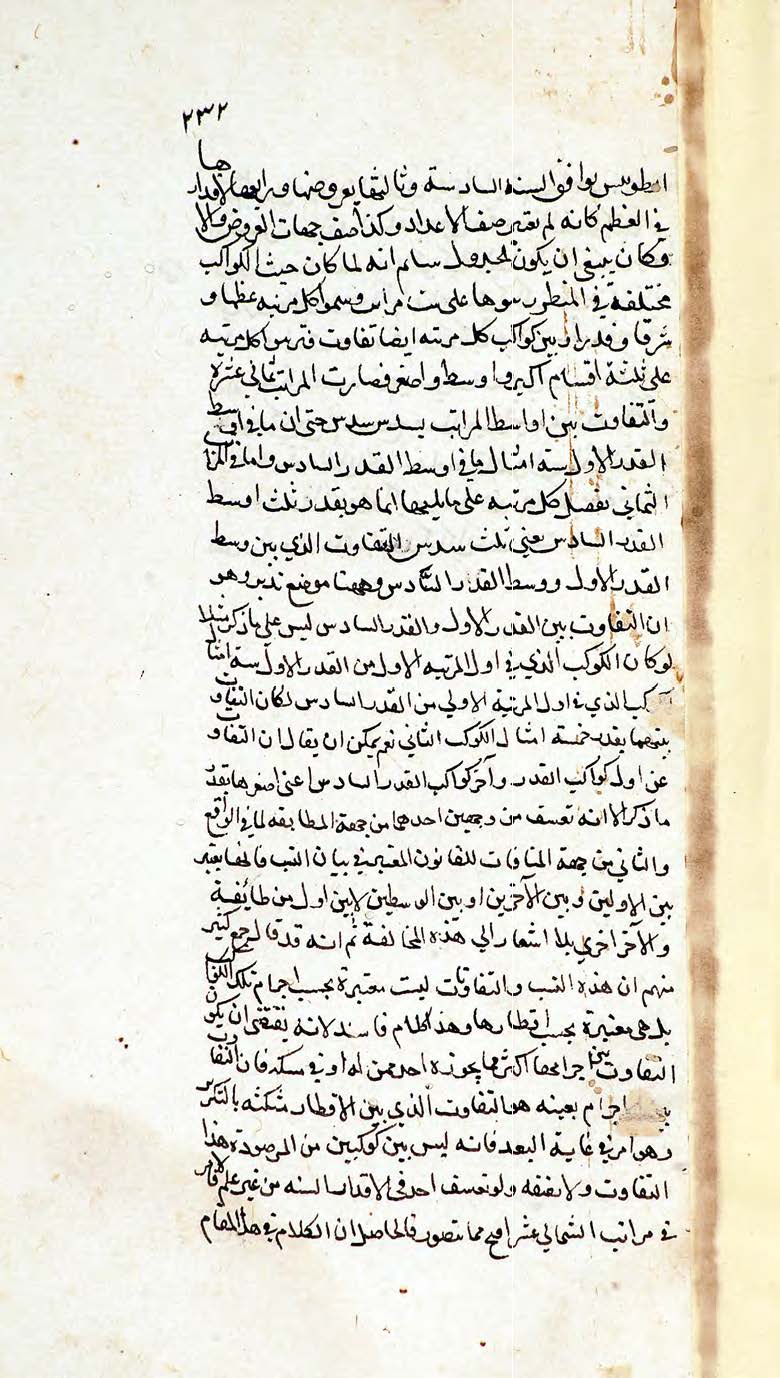 ٢٣٢
يوافق السنة السادسة وثالثها بعروضها ورابعها الاقدار
في العظم كانه لم يعتبر صف الاعداد وكذا صف جهات العروض والا
وكان ينبغي ان يكون انه لما كان حيث الكواكب
مختلفة في المنظور رسوها على ست مراتب وسموا كل مرتبة عظما و
شرفا وقدرا وبين كواكب كل مرتبه ايضا تفاوت كل مرتبه
على ثلثة اقسام اكبر واوسط واصغر فصارت المراتب ثماني عشرة
والتفاوت بين اواسط المراتب بسدس سدس حتى ان ما في اوسط
القدر الاول ستة امثال ما في اوسط القدر السادس واما في المراتب
الثماني تفضل كل مرتبه على ما يليها انما هو بقدر ثلث اوسط
القدر السادس يعني ثلث سدس التفاوت الذي بين وسط
القدر الاول ووسط القدر السادس وههنا موضع تدبر وهو
ان التفاوت بين القدر الاول والقدر السادس ليس على ما ذكر مثلا
لو كان الكوكب الذي في اول المرتبه الاولى من القدر الاول ستة امثال
الذي في اول المرتبة الاولى من القدر السادس لكان التفاوت
بينهما بقدر خمسة امثال الكوكب الثاني نعم يمكن ان يقال ان التفاوت
عن اول كواكب القدر وآخر كواكب القدر السادس اعني اصغرها بقدر
ما ذكر الا انه تعسف من وجهين احدهما من جهة المطابقه لما في الواقع
والثاني من جهة المنافات للقانون المعتبر في بيان النسب فانها يعتبر
بين الاولين وبين الآخرين او بين الوسطين لا بين اول من طائفة
والآخر اخرى بلا اشعار الى هذه المخالفة ثم انه قد قال جمع كثير
منهم ان هذه النسب والتفاوتات ليست معتبرة بحسب اجرام تلك الكواكب
بل هي معتبرة بحسب اقطارها وهذا الكلام فاسد لانه يقتضي ان يكون
التفاوت بين اجرامها اكثر مما يجوزه احد ممن له او في سكه فان التفاوت
اجرام بعينه هو التفاوت الذي بين الاقطار مثلثه بالتكرير
وهو امر في غاية البعد فانه ليس بين كوكبين من المرصودة هذا
التفاوت ولا بنصفه ولو تعسف احد في الاقدار الستة من غير علم
في مراتب الثماني عشر مما يتصور فالحاصل ان الكلام في هذا المقام